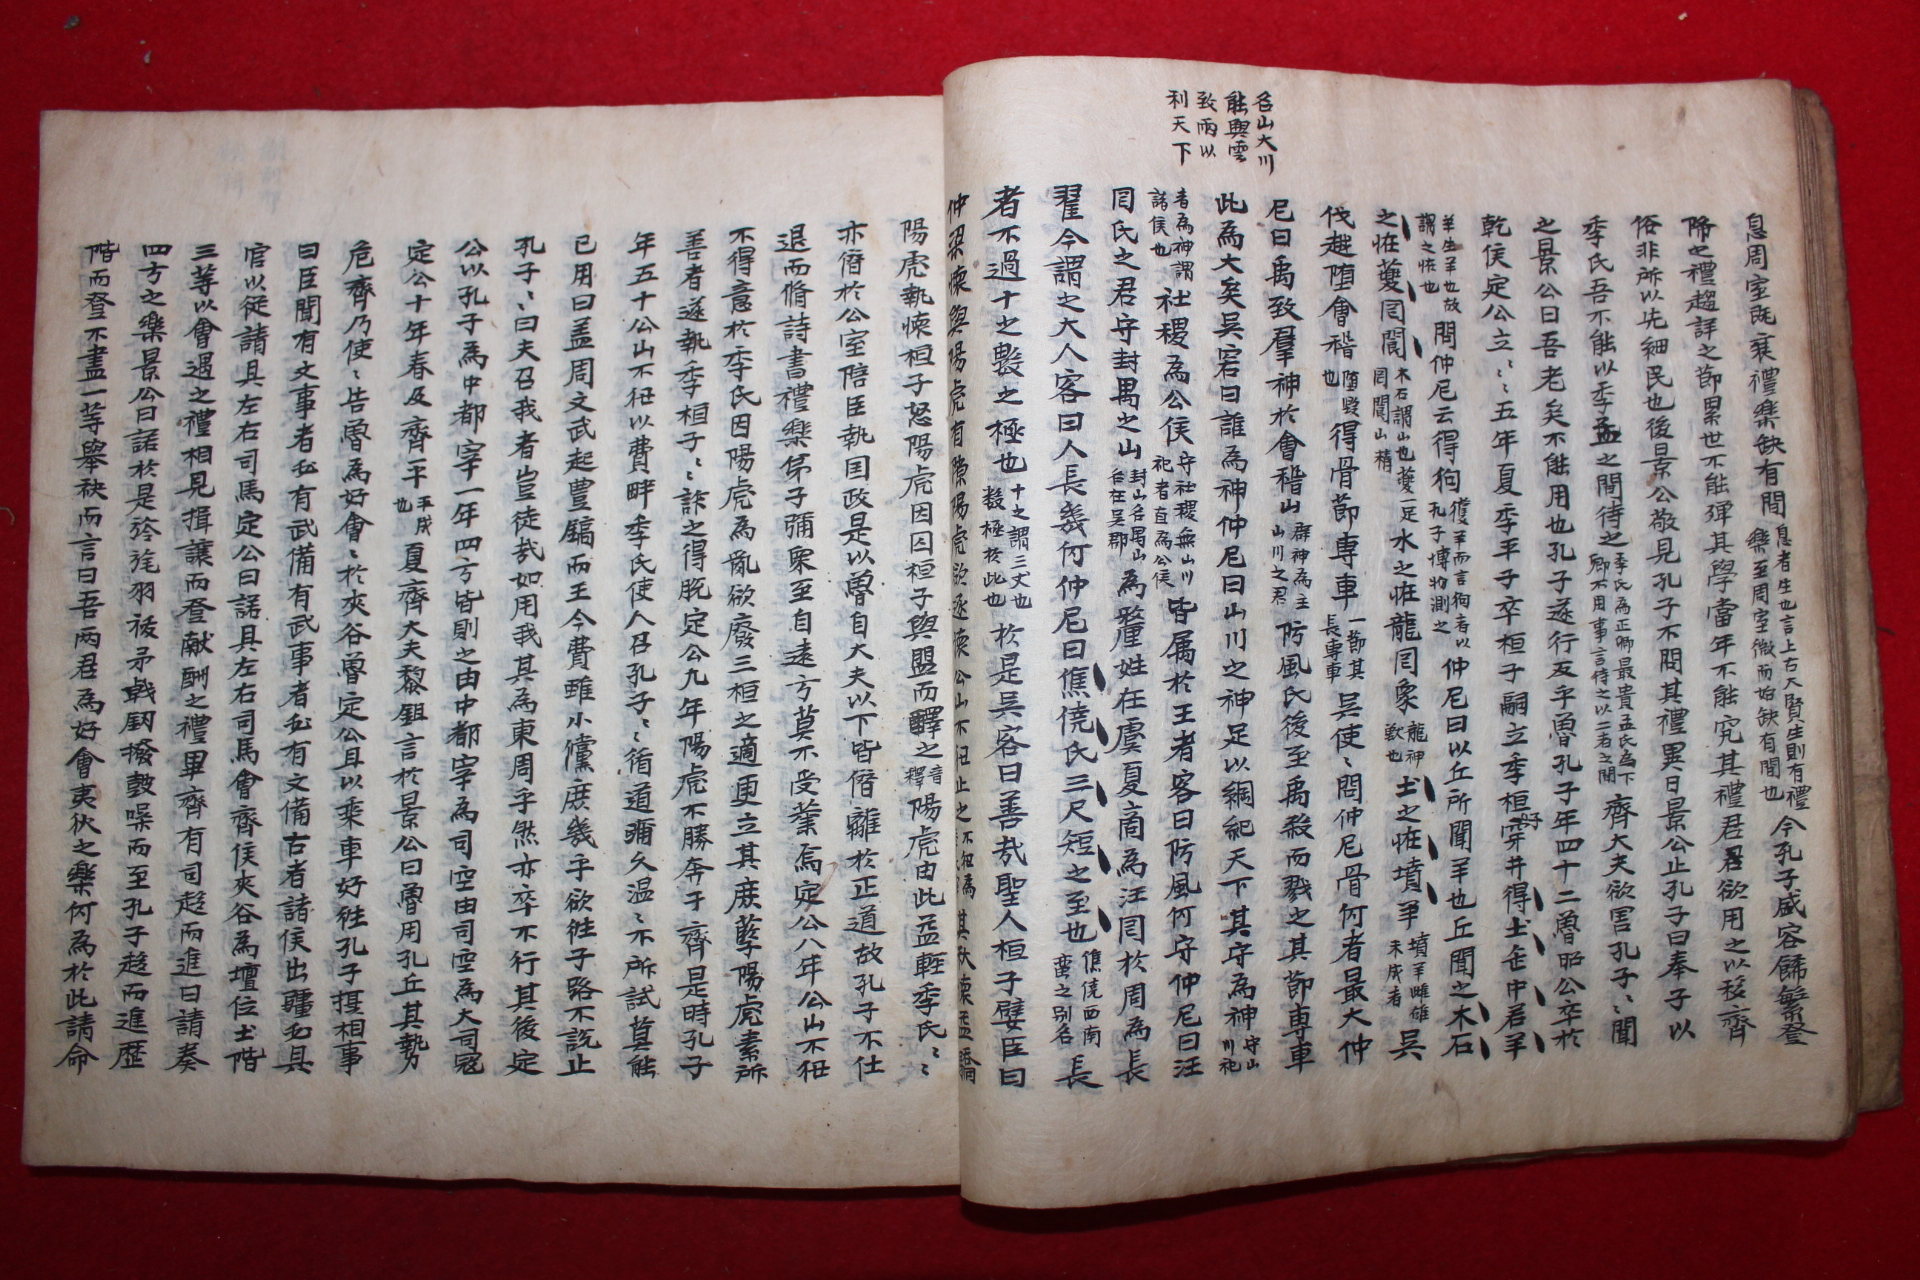 名山大川
能興雲
致雨以
利天下
息周室旣衰禮樂缺有間息者生也言上古大賢生則有禮樂至周室微而始缺有間也今孔子盛容飾繁登
降之禮趨詳之節累世不能殫其學當年不能究其禮君君欲用之以移齊
俗非所以先細民也後景公敬見孔子不問其禮異日景公止孔子曰奉子以
季氏吾不能以季孟之間待之季氏為正卿最貴孟氏為下卿不用事言待之以二者之間齊大夫欲害孔子〻聞
之景公曰吾老矣不能用也孔子遂行反乎魯孔子年四十二魯昭公卒於
乾侯定公立〻〻五年夏季平子卒桓子嗣立季桓穿井得土缶中若羊
羊生羊也故謂之怪也問仲尼云得狗獲羊而言狗者以孔子博物測之仲尼曰以丘所聞羊也丘聞之木石
之怪夔罔閬木石謂山也夔一足罔閬山精水之怪龍罔象龍神獸也土之怪墳羊墳羊雌雄未成者吳
伐越墮會稽墮毀也得骨節專車一節其長專車吳使〻問仲尼骨何者最大仲
尼曰禹致羣神於會稽山群神為主山川之君防風氏後至禹殺而戮之其節專車
此為大矣吳客曰誰為神仲尼曰山川之神足以綱紀天下其守為神守山川祀
者為神謂諸侯也社稷為公侯守社稷無山川祀者直為公侯皆属於王者客曰防風何守仲尼曰汪
罔氏之君守封禺之山封山名禺山名在吳郡為釐姓在虞夏商為汪罔於周為長
翟今謂之大人客曰人長幾何仲尼曰僬僥氏三尺短之至也僬僥西南蛮之別名長
者不過十之數之極也十之謂三丈也数極於此也於是吳客曰善哉聖人桓子嬖臣曰
仲梁懷與陽虎有隙陽虎欲逐懷公山不狃止之其秋懷益驕
陽虎執懷桓子怒陽虎因囚桓子與盟而釋之音釋陽虎由此益輕季氏〻
亦僭於公室陪臣執国政是以魯自大夫以下皆僭離於正道故孔子不仕
退而脩詩書禮樂弟子彌衆至自遠方莫不受業焉定公八年公山不狃
不得意於季氏因陽虎為亂欲廢三桓之適更立其庶孽陽虎素所
善者遂執季桓子〻詐之得脫定公九年陽虎不勝奔于齊是時孔子
年五十公山不狃以費畔季氏使人召孔子〻循道彌久温〻不所試莫能
已用曰盖周文武起豊鎬而王今費雖小儻庶幾乎欲徃子路不說止
孔子〻曰夫召我者豈徒㢤如用我其為東周乎然亦卒不行其後定
公以孔子為中都宰一年四方皆則之由中都宰為司空由司空為大司冦
定公十年春及齊平平成也夏齊大夫黎鉏言於景公曰魯用孔丘其勢
危齊乃使〻告魯為好會〻於夾谷魯定公且以乘車好徃孔子摂相事
曰臣聞有文事者必有武備有武事者必有文備古者諸侯出疆必具
官以從請具左右司馬定公曰諾具左右司馬會齊侯夾谷為壇位土階
三等以會遇之禮相見揖讓而登献酬之禮畢齊有司趍而進曰請奏
四方之樂景公曰諾於是旍旄羽袚矛戟劔撥鼓噪而至孔子趍而進歷
階而登不盡一等舉袂而言曰吾兩君為好會夷狄之樂何為於此請命